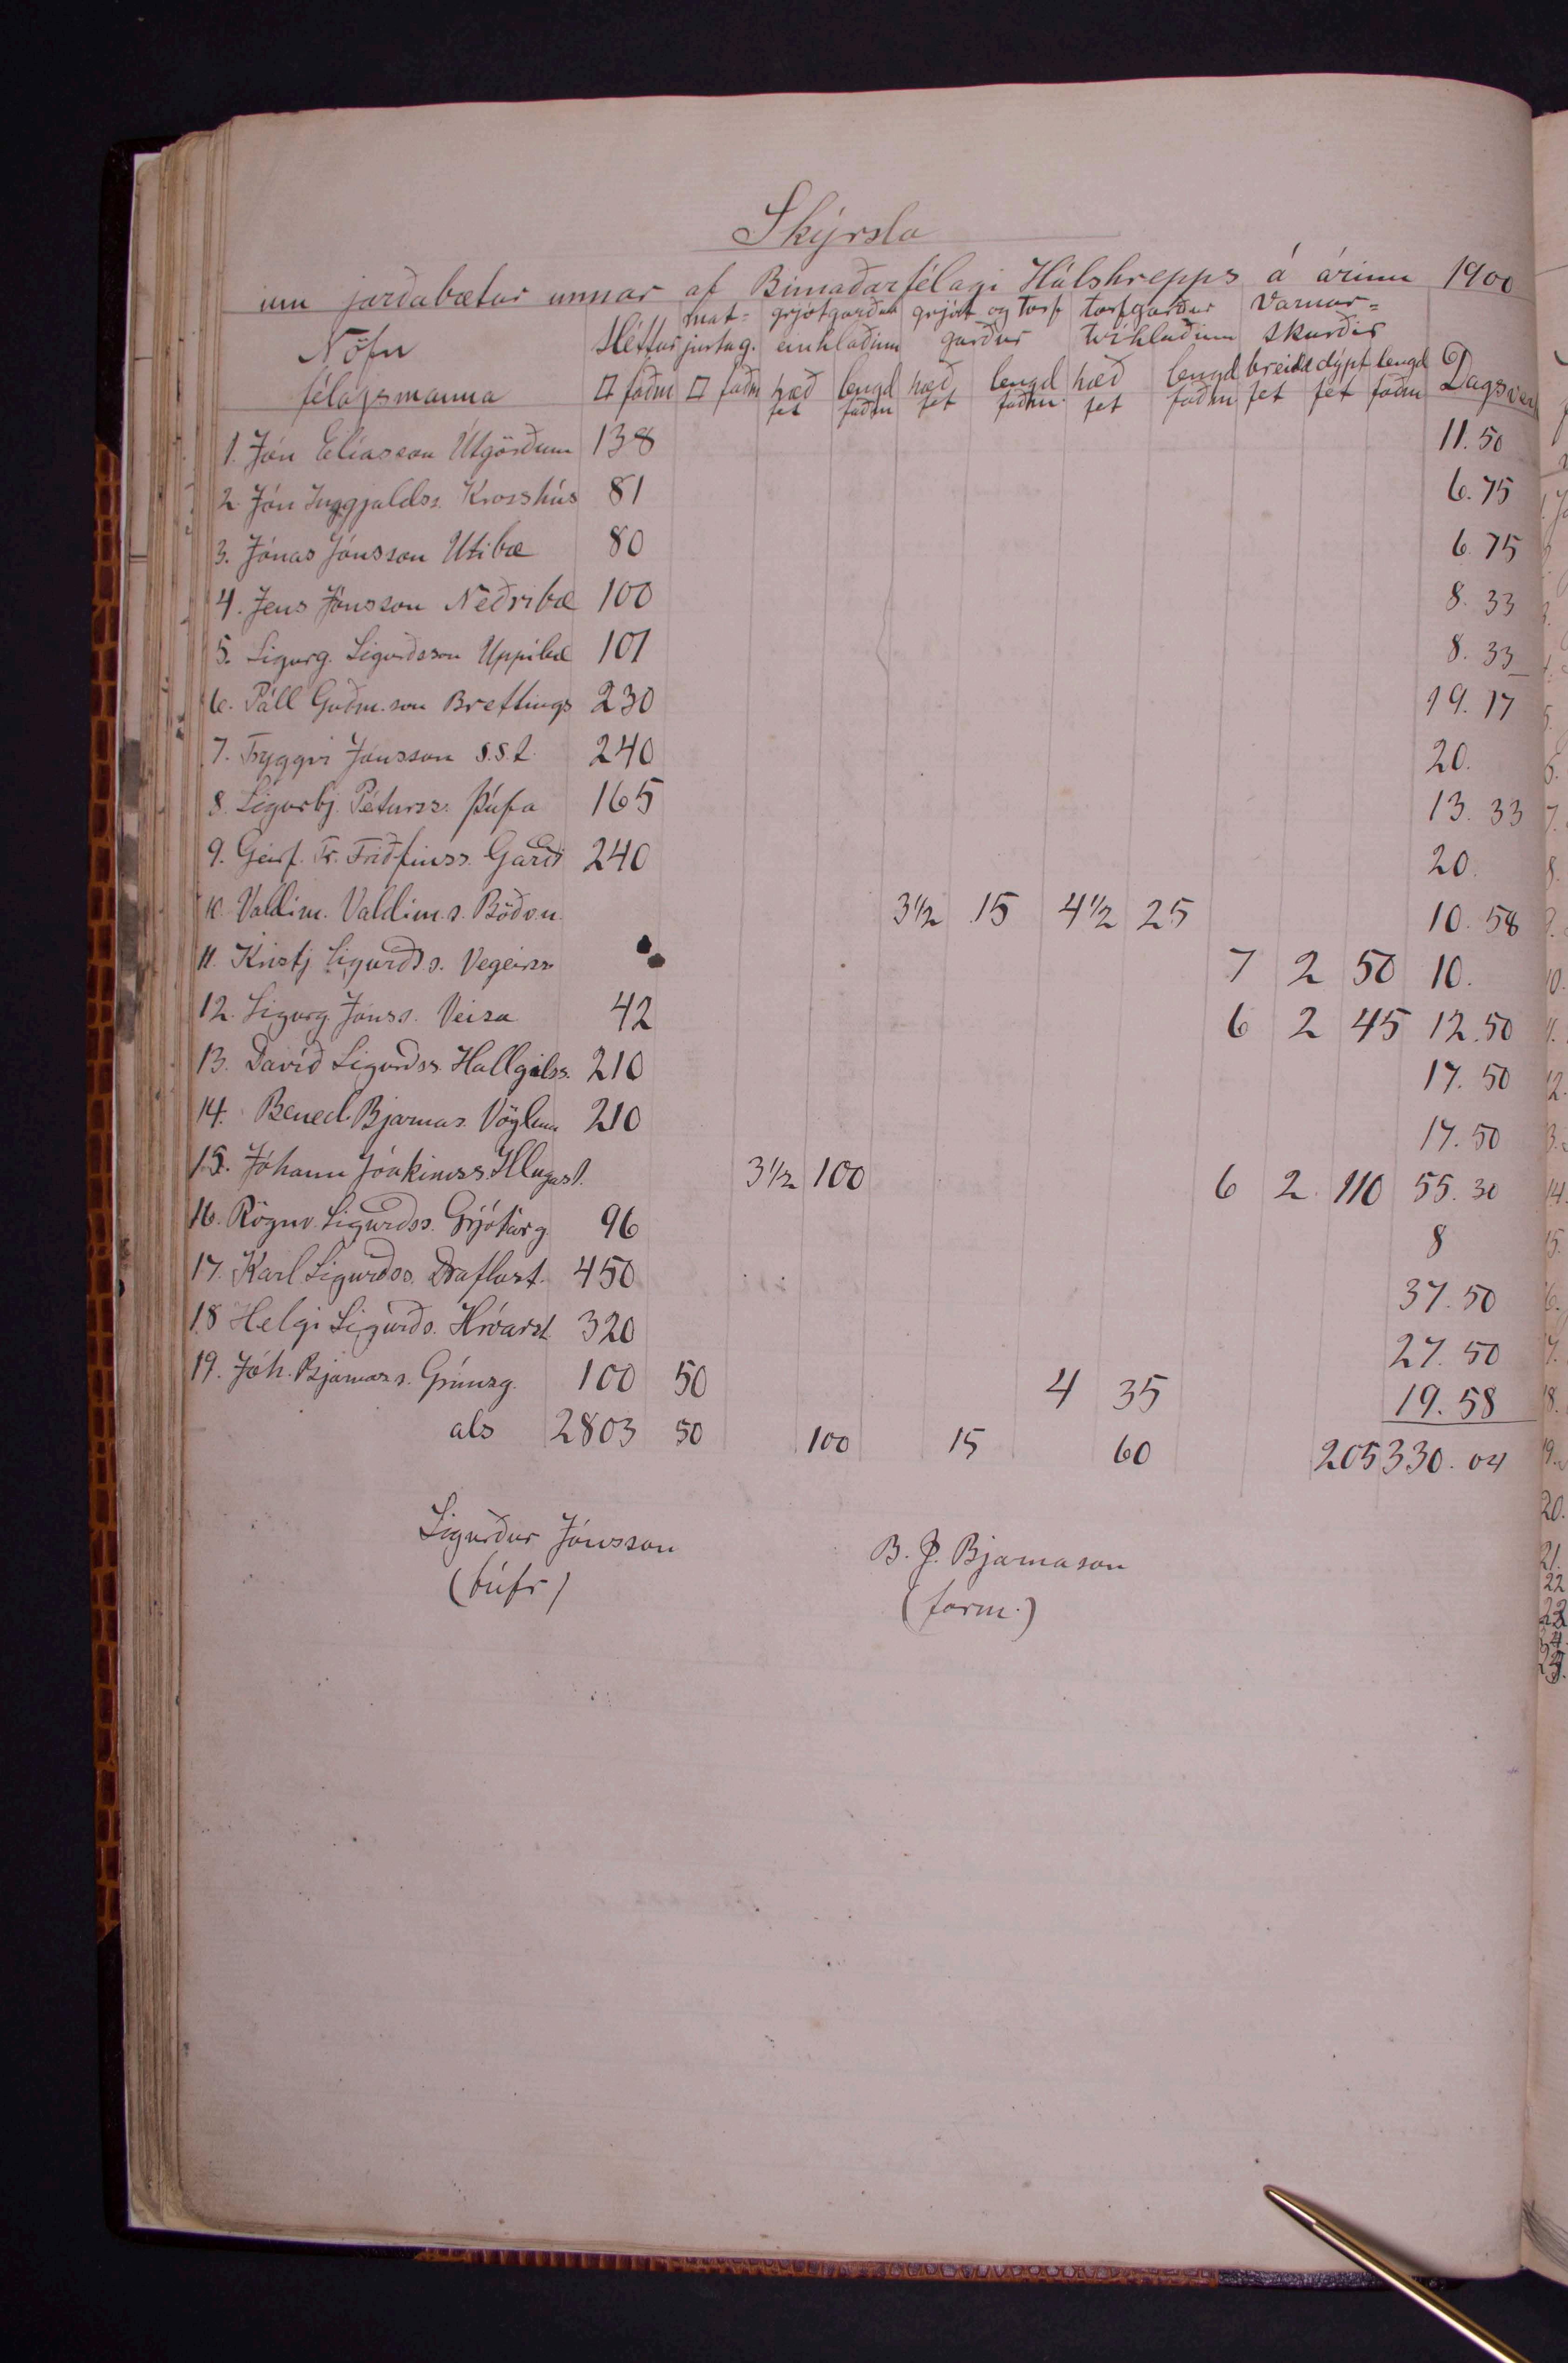 Skýrsla
um jarðabætur unnar af Búnaðarfélagi Hálshrepps á árinu 1900
Nöfn félagsmanna | Sléttur □ faðm | mat=jurtag. □ faðm | grjótgarður einhlaðinn hæð fet lengd faðm | grjót og torf garður hæð fet lengd faðm | torfgarður tvíhlaðinn hæð fet lengd faðm | Varnar=skurðir breidd fet dýpt fet lengd faðm | Dagsver
1. Jón Elíasson Útgörðum 138 11.50
2. Jón Inggjaldss. Krosshús 81 6.75
3. Jónas Jónsson Útibæ 80 6.75
4. Jens Jónsson Neðribæ 100 8.33
5. Sigurg. Sigurðsson Uppibæ 101 8.33
6. Páll Guðm.son Brettings 230 19.17
7. Tryggvi Jónsson s.s.t. 240 20.
8. Sigurbj. Péturss. Þúfa 165 13.33
9. Geirf. Tr. Friðfinss. Garði 240 20.
10. Valdim. Valdim.s. Böðv.n. 3½ 15 4½ 25 10.58
11. Kristj. Sigurðs s. Vegeirss 7 2 50 10.
12. Sigurg. Jónss. Veisa 42 6 2 45 12.50
13. Davíð Sigurðss. Hallgilss. 210 17.50
14. Bened. Bjarnas. Vöglum 210 17.50
15. Jóhann Jóakimss. Illugast. 3½ 100 6 2 110 55.30
16. Rögnv. Sigurðss. Grjótárg. 96 8
17. Karl Sigurðss. Draflast. 450 37.50
18 Helgi Sigurðs. Hróarst. 320 27.50
19. Jóh. Bjarnars. Grímsg. 100 50 4 35 19.58
als 2803 50 100 15 60 205 330.04
Sigurður Jónsson
(búfr)
B. J. Bjarnason
(form.)